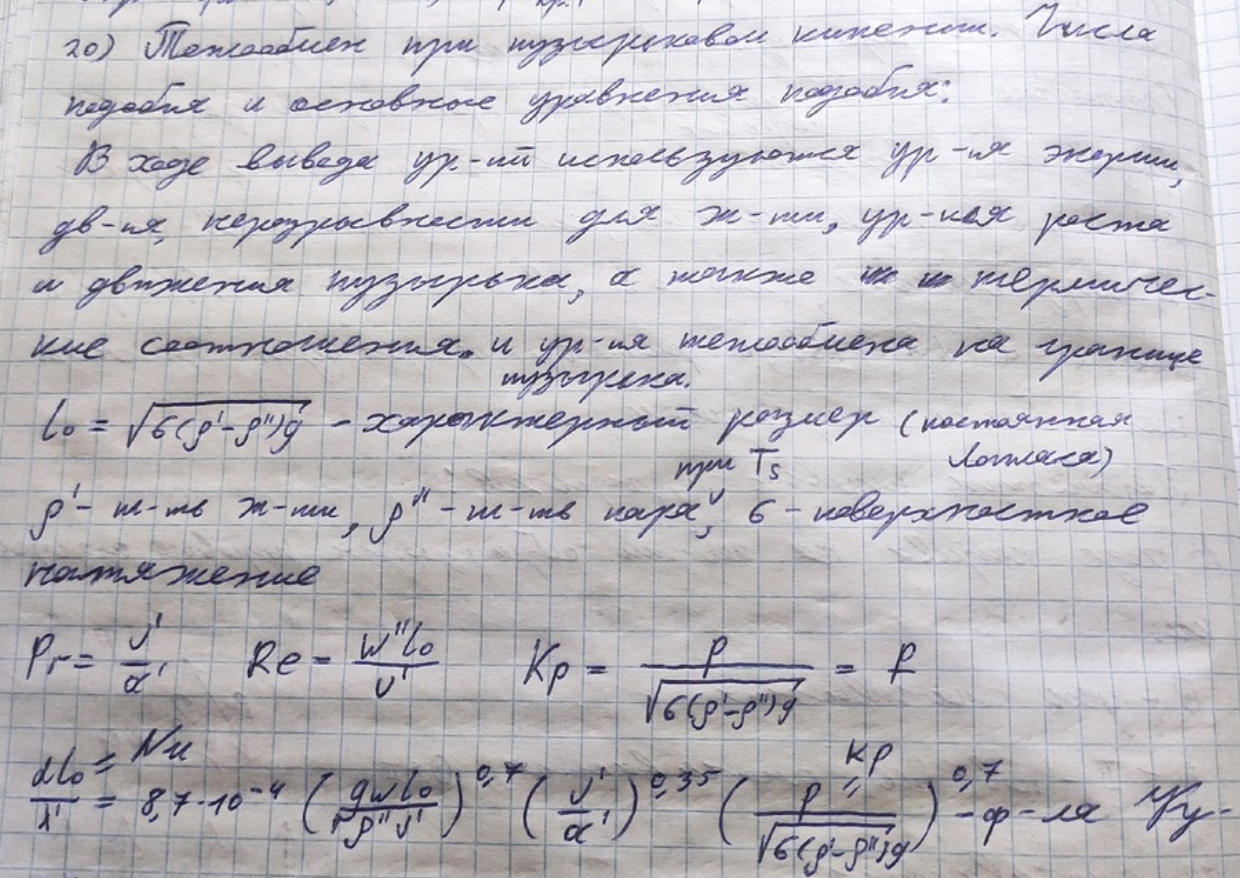 20) Теплообмен при пузырьковом кипении. Числа
подобия и основные уравнения подобия:
В ходе вывода ур-ий используются ур-ия энергии,
дв-ия, неразрывности для ж-ти, ур-ия роста
и движения пузырька, а также термичес-
кие соотношения и ур-ия теплообмена на границе
пузырька.
l₀ = √б(ρ'-ρ'')g - характерный размер (постоянная
при Ts Лапласа)
ρ' - пл-ть ж-ти, ρ'' - пл-ть пара, б - поверхностное
натяжение
Pr = ν'/a' Re = w''l₀/ν' Kp = p/√б(ρ'-ρ'')g = f
αl₀/λ' = Nu = 8,7·10⁻⁴ (qwl₀/rρ''ν')^0,7 (ν'/a')^0,35 (p/√б(ρ'-ρ'')g = Kp)^0,7 - ф-ла Ку-